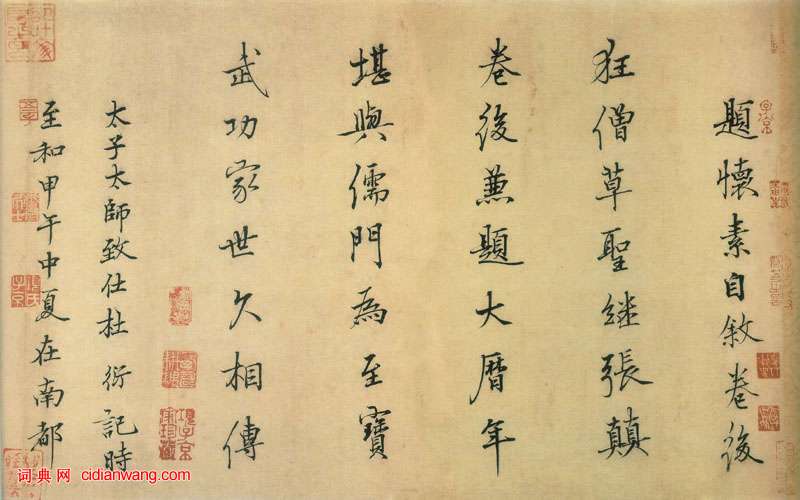 題懷素自敘卷後
狂僧草聖继張顛
卷後兼題大曆年
堪與儒門為至寶
武功家世久相傳
太子太師致仕杜衍記時
至和甲午中夏在南都
词典网 cidianwang.com